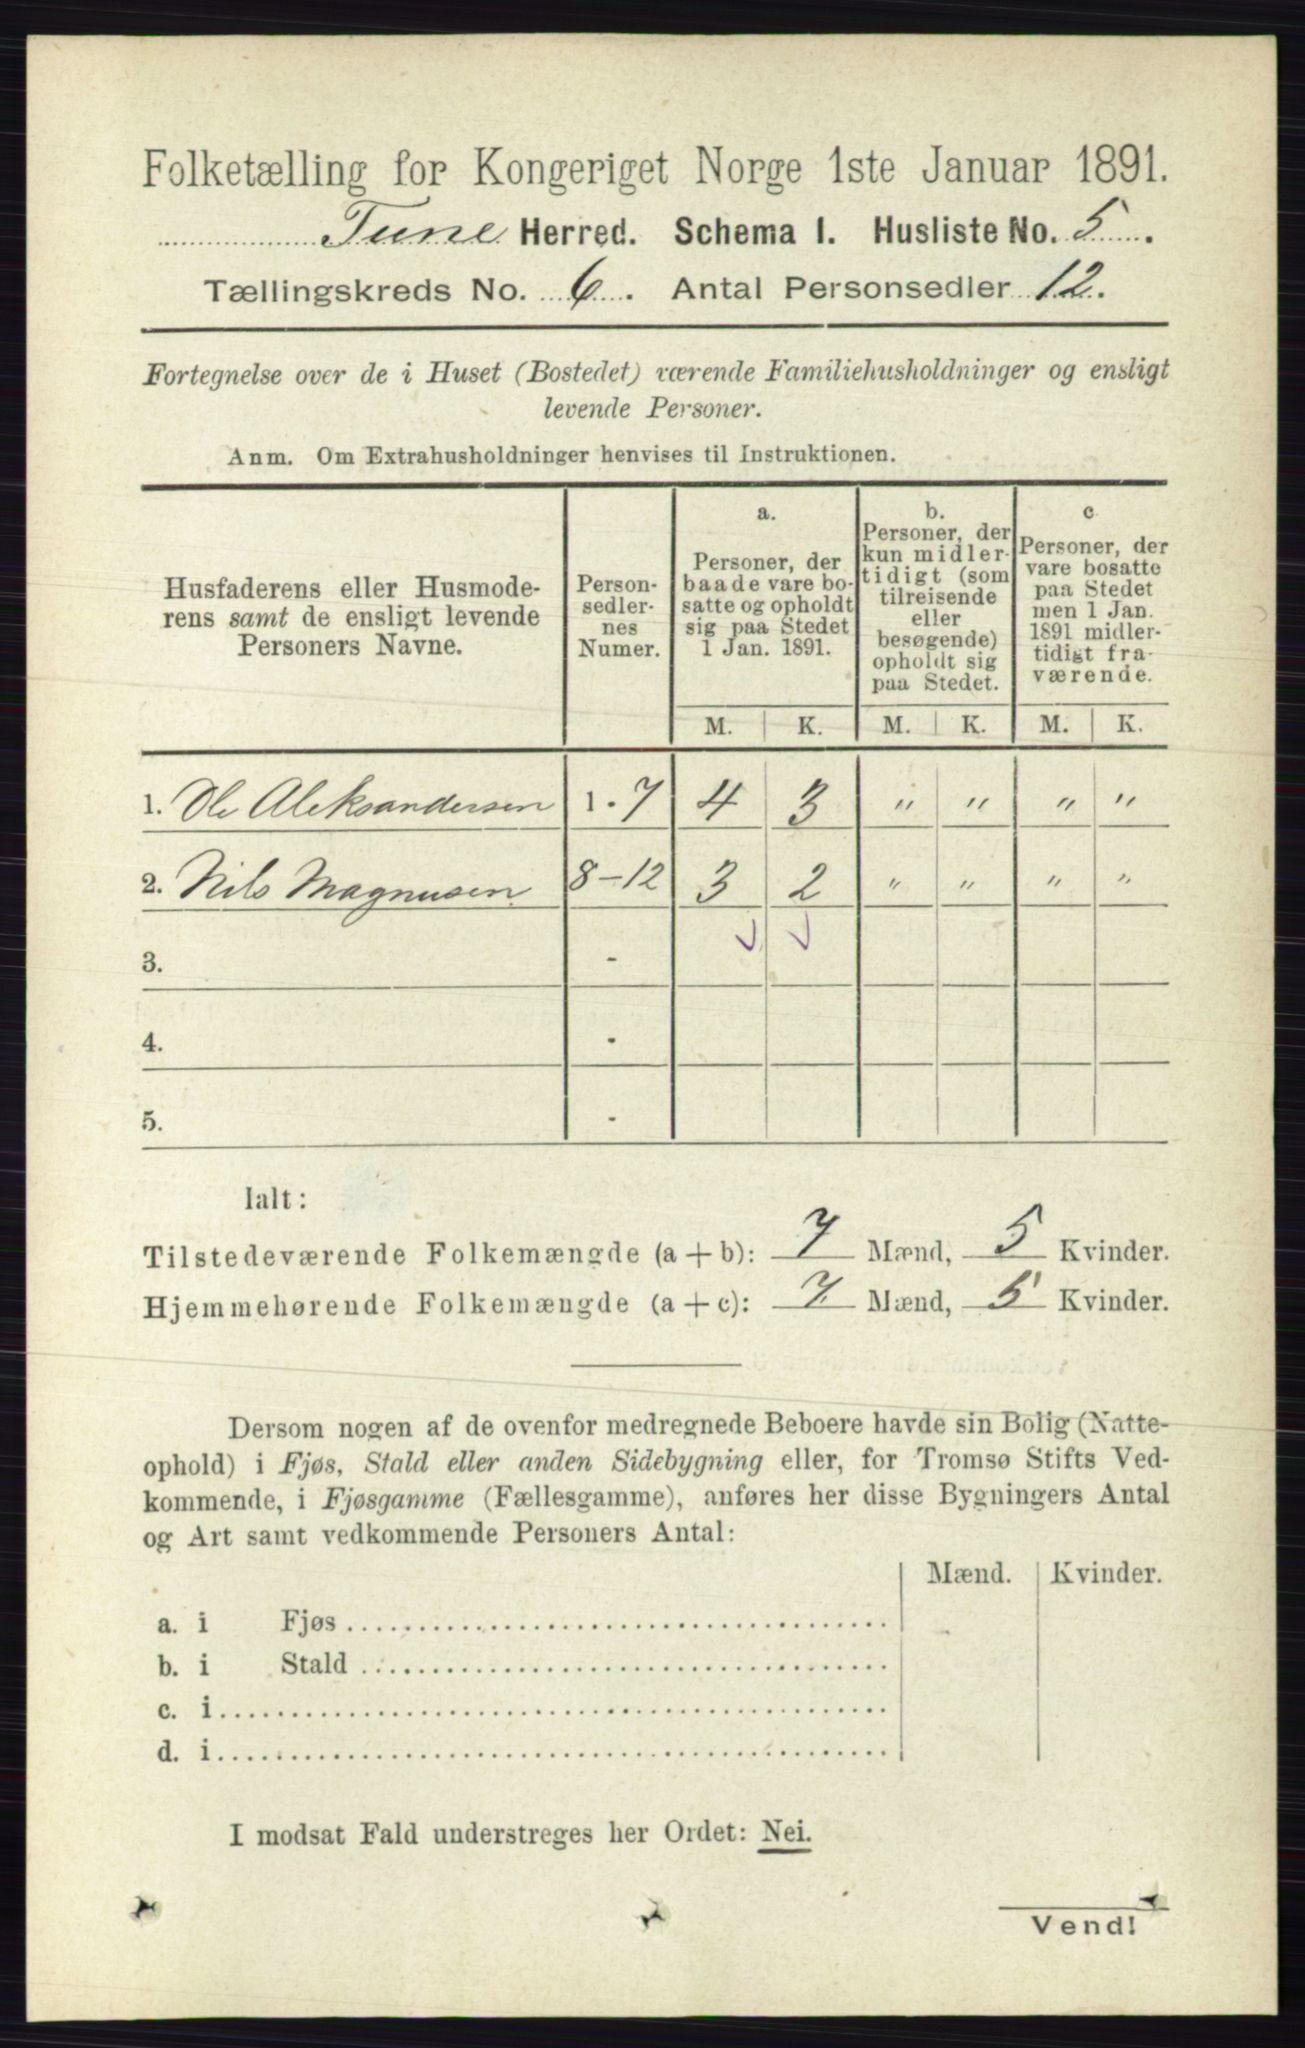 Folketælling for Kongeriget Norge 1ste Januar 1891.
Tune Herred. Schema I. Husliste No. 5.
Tællingskreds No. 6. Antal Personsedler 12.
Fortegnelse over de i Huset (Bostedet) værende Familiehusholdninger og ensligt
levende Personer.
Anm. Om Extrahusholdninger henvises til Instruktionen.
Husfaderens eller Husmode-
rens samt de ensligt levende
Personers Navne.
Person-
sedler-
nes
Numer.
a.
Personer, der
baade vare bo-
satte og opholdt
sig paa Stedet
1 Jan. 1891.
b.
Personer, der
kun midler-
tidigt (som
tilreisende
eller
besøgende)
opholdt sig
paa Stedet.
c
Personer, der
vare bosatte
paa Stedet
men 1 Jan.
1891 midler-
tidigt fra-
værende.
M. K. M. K. M. K.
1. Ole Aleksandersen 1 - 7 4 3 " " " "
2. Nils Magnusen 8 - 12 3 2 " " " "
3. -
4. -
5. -
Ialt:
Tilstedeværende Folkemængde (a + b): 7 Mænd, 5 Kvinder.
Hjemmehørende Folkemængde (a + c): 7 Mænd, 5 Kvinder.
Dersom nogen af de ovenfor medregnede Beboere havde sin Bolig (Natte-
ophold) i Fjøs, Stald eller anden Sidebygning eller, for Tromsø Stifts Ved-
kommende, i Fjøsgamme (Fællesgamme), anføres her disse Bygningers Antal
og Art samt vedkommende Personers Antal:
Mænd. Kvinder.
a. i Fjøs
b. i Stald
c. i
d. i
I modsat Fald understreges her Ordet: Nei.
Vend!